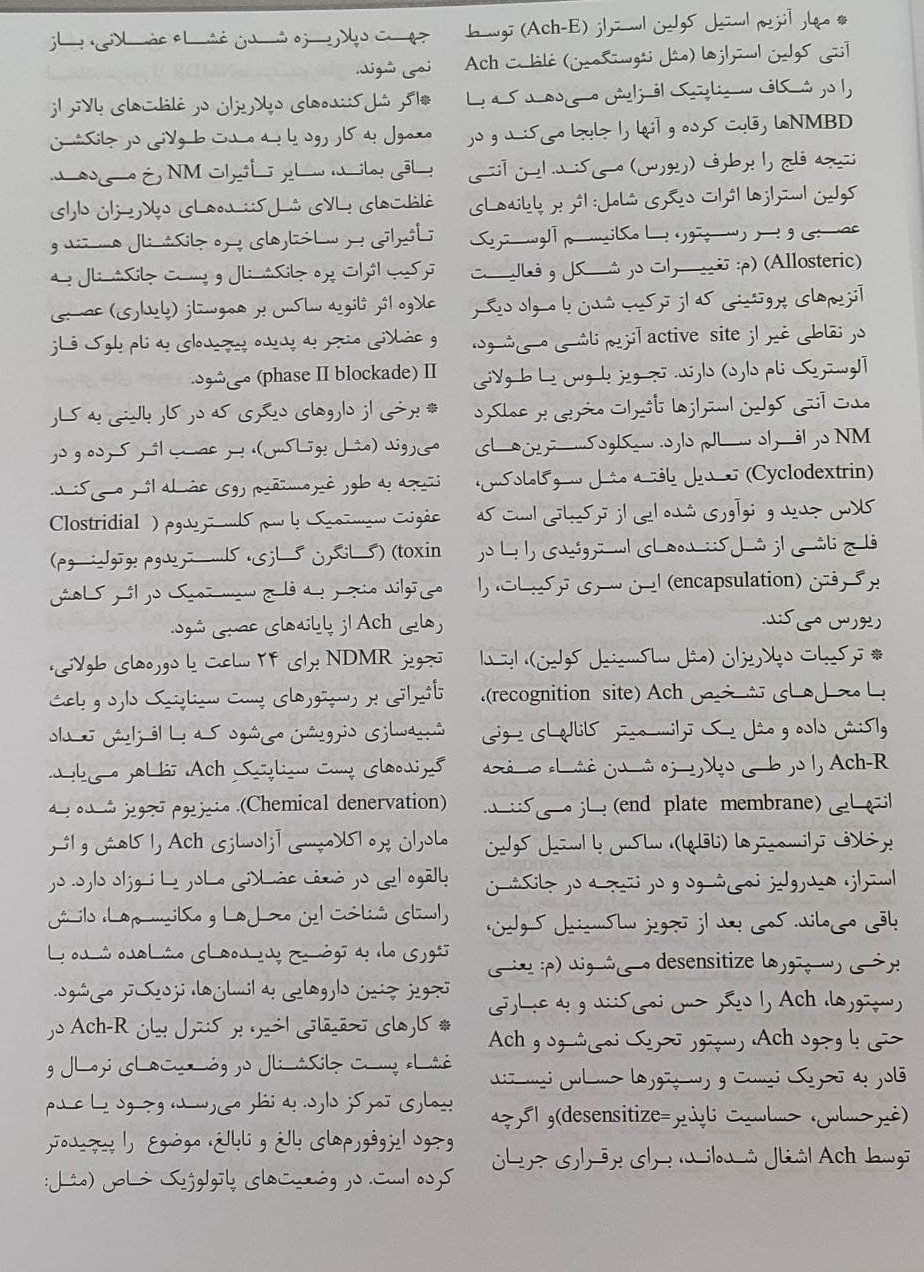 * مهار آنزیم استیل کولین استراز (Ach-E) توسط
آنتی کولین استرازها (مثل نئوستگمین) غلظت Ach
را در شکاف سیناپتیک افزایش می‌دهد که با
NMBDها رقابت کرده و آنها را جابجا می‌کند و در
نتیجه فلج را برطرف (ریورس) می‌کند. این آنتی
کولین استرازها اثرات دیگری شامل: اثر بر پایانه‌های
عصبی و بر رسپتور، با مکانیسم آلوستریک
(Allosteric) (م: تغییرات در شکل و فعالیت
آنزیم‌های پروتئینی که از ترکیب شدن با مواد دیگر
در نقاطی غیر از active site آنزیم ناشی می‌شود،
آلوستریک نام دارد) دارند. تجویز بلوس یا طولانی
مدت آنتی کولین استرازها تأثیرات مخربی بر عملکرد
NM در افراد سالم دارد. سیکلودکسترین‌های
(Cyclodextrin) تعدیل یافته مثل سوگامادکس،
کلاس جدید و نوآوری شده ایی از ترکیباتی است که
فلج ناشی از شل‌کننده‌های استروئیدی را با در
برگرفتن (encapsulation) این سری ترکیبات، را
ریورس می‌کند.
* ترکیبات دپلاریزان (مثل ساکسینیل کولین)، ابتدا
با محل‌های تشخیص Ach (recognition site)،
واکنش داده و مثل یک ترانسمیتر کانالهای یونی
Ach-R را در طی دپلاریزه شدن غشاء صفحه
انتهایی (end plate membrane) باز می‌کنند.
برخلاف ترانسمیترها (ناقلها)، ساکس با استیل کولین
استراز، هیدرولیز نمی‌شود و در نتیجه در جانکشن
باقی می‌ماند. کمی بعد از تجویز ساکسینیل کولین،
برخی رسپتورها desensitize می‌شوند (م: یعنی
رسپتورها، Ach را دیگر حس نمی‌کنند و به عبارتی
حتی با وجود Ach، رسپتور تحریک نمی‌شود و Ach
قادر به تحریک نیست و رسپتورها حساس نیستند
(غیرحساس، حساسیت ناپذیر=desensitize)و اگرچه
توسط Ach اشغال شده‌اند، برای برقراری جریان
جهت دپلاریزه شدن غشاء عضلانی، باز
نمی شوند.
*اگر شل‌کننده‌های دپلاریزان در غلظت‌های بالاتر از
معمول به کار رود یا به مدت طولانی در جانکشن
باقی بماند، سایر تأثیرات NM رخ می‌دهد.
غلظت‌های بالای شل‌کننده‌های دپلاریزان دارای
تأثیراتی بر ساختارهای پره جانکشنال هستند و
ترکیب اثرات پره جانکشنال و پست جانکشنال به
علاوه اثر ثانویه ساکس بر هموستاز (پایداری) عصبی
و عضلانی منجر به پدیده پیچیده‌ای به نام بلوک فاز
II (phase II blockade) می‌شود.
* برخی از داروهای دیگری که در کار بالینی به کار
می‌روند (مثل بوتاکس)، بر عصب اثر کرده و در
نتیجه به طور غیرمستقیم روی عضله اثر می‌کند.
عفونت سیستمیک با سم کلستریدوم (Clostridial
toxin) (گانگرن گازی، کلستریدوم بوتولینوم)
می‌تواند منجر به فلج سیستمیک در اثر کاهش
رهایی Ach از پایانه‌های عصبی شود.
تجویز NDMR برای ۲۴ ساعت یا دوره‌های طولانی،
تأثیراتی بر رسپتورهای پست سیناپتیک دارد و باعث
شبیه‌سازی دنرویشن می‌شود که با افزایش تعداد
گیرنده‌های پست سیناپتیکِ Ach، تظاهر می‌یابد.
(Chemical denervation). منیزیوم تجویز شده به
مادران پره اکلامپسی آزادسازی Ach را کاهش و اثر
بالقوه ایی در ضعف عضلانی مادر یا نوزاد دارد. در
راستای شناخت این محل‌ها و مکانیسم‌ها، دانش
تئوری ما، به توضیح پدیده‌های مشاهده شده با
تجویز چنین داروهایی به انسان‌ها، نزدیک‌تر می‌شود.
* کارهای تحقیقاتی اخیر، بر کنترل بیان Ach-R در
غشاء پست جانکشنال در وضعیت‌های نرمال و
بیماری تمرکز دارد. به نظر می‌رسد، وجود یا عدم
وجود ایزوفورم‌های بالغ و نابالغ، موضوع را پیچیده‌تر
کرده است. در وضعیت‌های پاتولوژیک خاص (مثل: